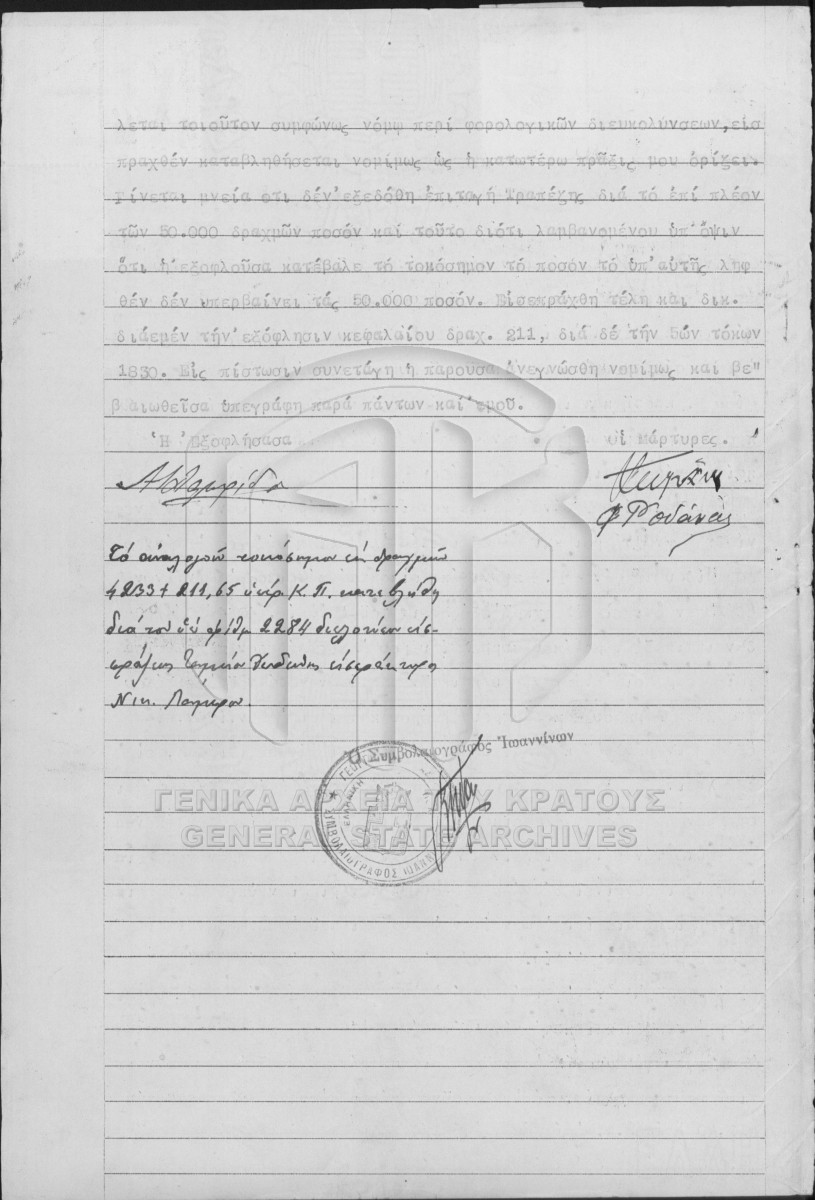 λεται τοιοῦτον συμφώνως νόμῳ περί φορολογικῶν διευκολύνσεων, εἰσ
πραχθέν καταβληθήσεται νομίμως ὡς ἡ κατωτέρω πρᾶξις μου ὁρίζει.
Γίνεται μνεία οτι δέν ἐξεδόθη ἐπιταγή Τραπέζης διά τό ἐπί πλέον
τῶν 50.000 δραχμῶν ποσόν καί τοῦτο διότι λαμβανομένου ὑπ' ὄψιν
ὅτι ἡ ἐξοφλοῦσα κατέβαλε τό τοκόσημον τό ποσόν τό ὑπ' αὐτῆς ληφ
θέν δέν υπερβαίνει τάς 50.000 ποσόν. Εἰσεπράχθη τέλη και δικ.
διάεμέν τήν ἐξόφλησιν κεφαλαίου δραχ. 211, διά δέ τήν 5ών τόκων
1830. Εἰς πίστωσιν συνετάγη ἡ παροῦσα ἀνεγνώσθη νομίμως και βε"
βαιωθεῖσα υπεγράφη παρά πάντων καί ἐμοῦ.
Ἡ Ἐξοφλήσασα οἱ μάρτυρες.
Τό ἀναλογοῦν τοκόσημον ἐκ δραχμῶν
4233 + 211,65 ὑπέρ Κ.Π. κατεβλήθη
διά τοῦ ὑπ' ἀριθμ 2284 διπλοτύπου εἰσ-
πράξεως
Νικ.
Ὁ Συμβολαιογράφος Ἰωαννίνων
ΕΛΛΗΝΙΚΗ
ΣΥΜΒΟΛΑΙΟΓΡΑΦΟΣ ΙΩΑΝΝ
ΓΕΝΙΚΑ ΑΡΧΕΙΑ ΤΟΥ ΚΡΑΤΟΥΣ
GENERAL STATE ARCHIVES